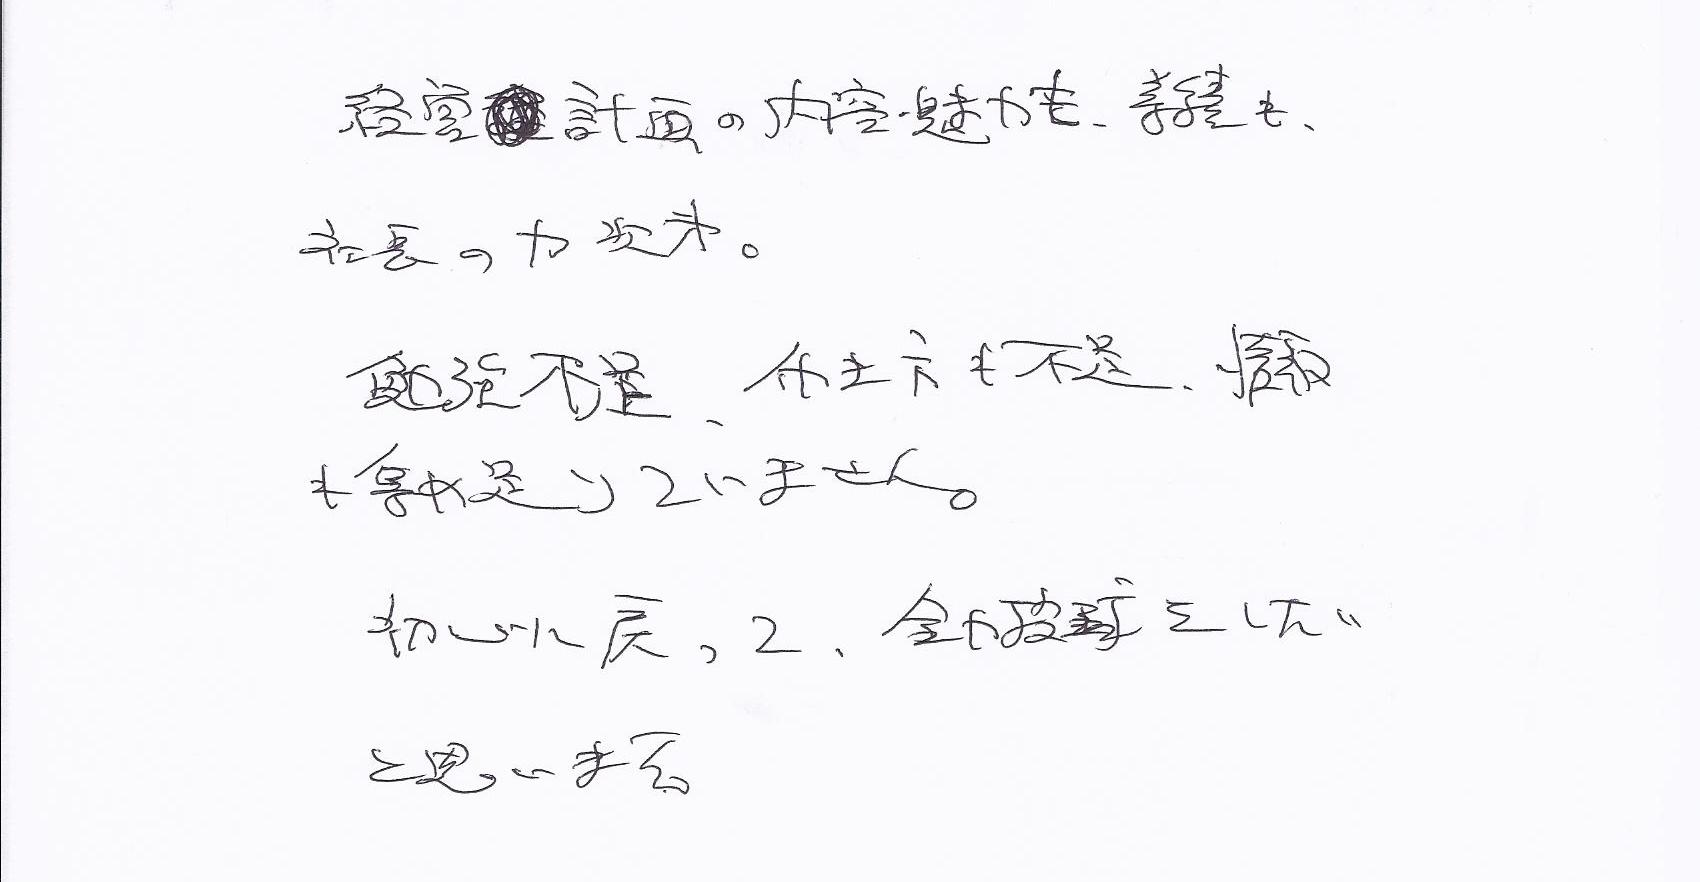 経営計画の内容・魅力も、業績も、
社長の力次第。
勉強不足、仕方も不足、
も足りていません。
初心に戻って、全力投球をしたい
と思います